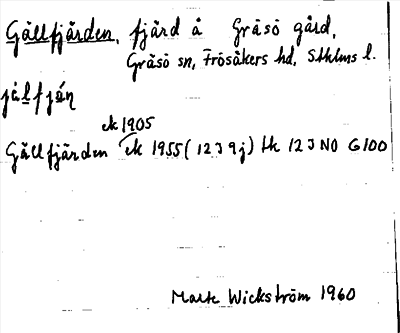 Gällfjärden, fjärd å Gräsö gård,
Gräsö sn, Frösåkers hd, Sthlms l.
ek 1905
Gällfjärden ek 1955 (12 J 9j) tk 12 J NO G100
Mark Wickström 1960